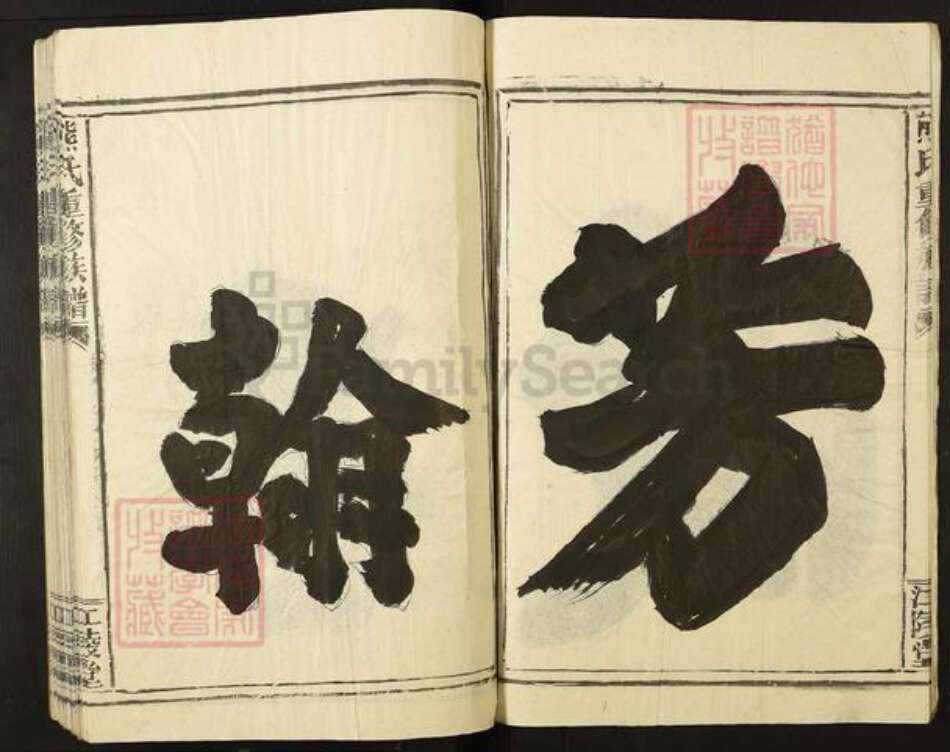 芳
翰
熊氏重修族譜
江陵堂
熊氏重修族譜
江陵堂
FamilySearch